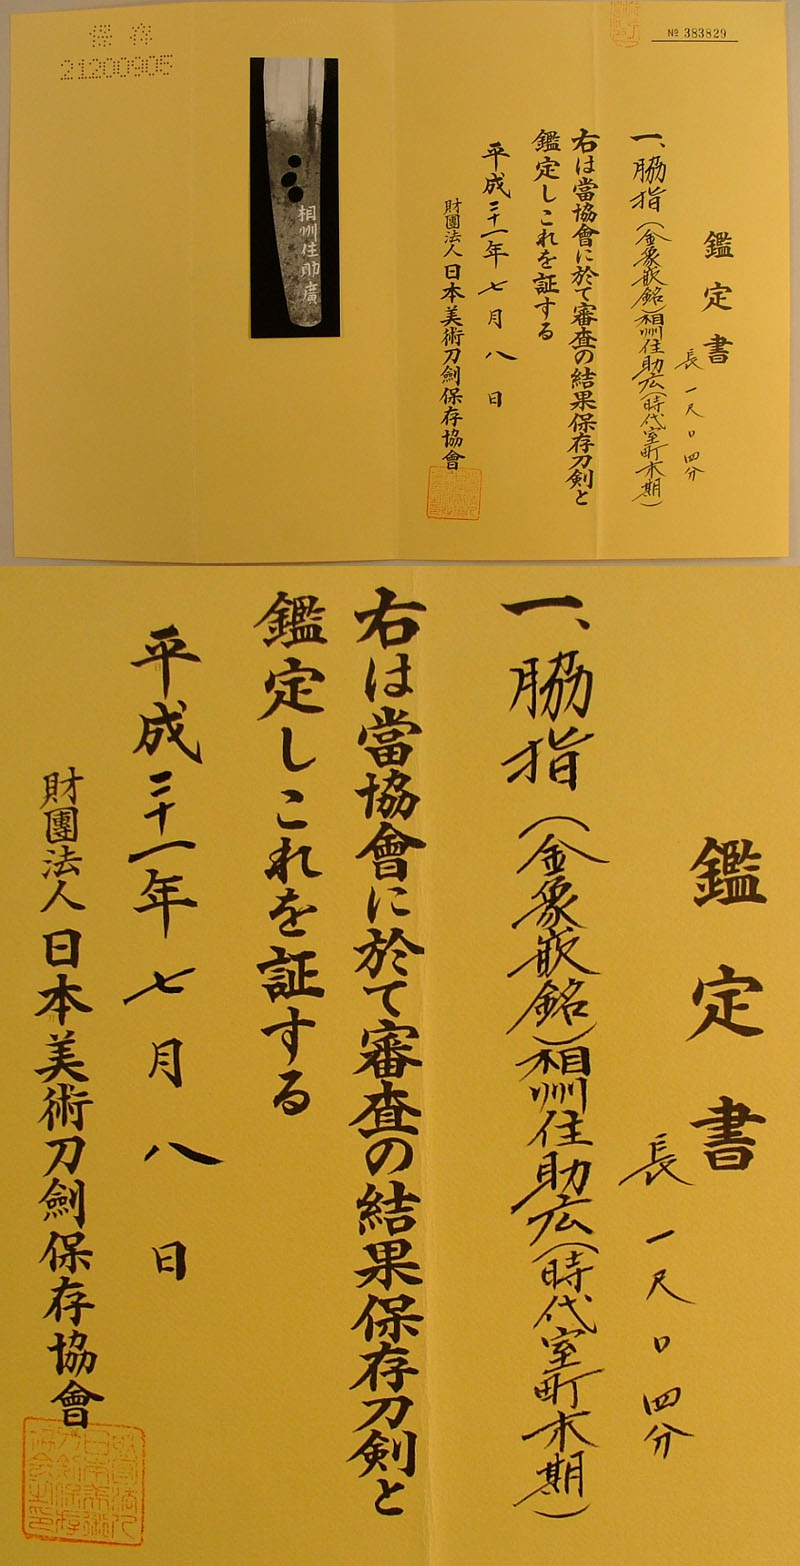 № 383829
鑑定書
長 一尺〇四分
一、脇指(金象嵌銘)相州住助広(時代室町末期)
右は當協會に於て審査の結果保存刀剣と
鑑定しこれを証する
平成二十一年七月八日
財團法人日本美術刀劍保存協會
相州住助廣
保存
21200905
鑑定書
長 一尺〇四分
一、脇指(金象嵌銘)相州住助広(時代室町末期)
右は當協會に於て審査の結果保存刀剣と
鑑定しこれを証する
平成二十一年七月八日
財團法人日本美術刀劍保存協會